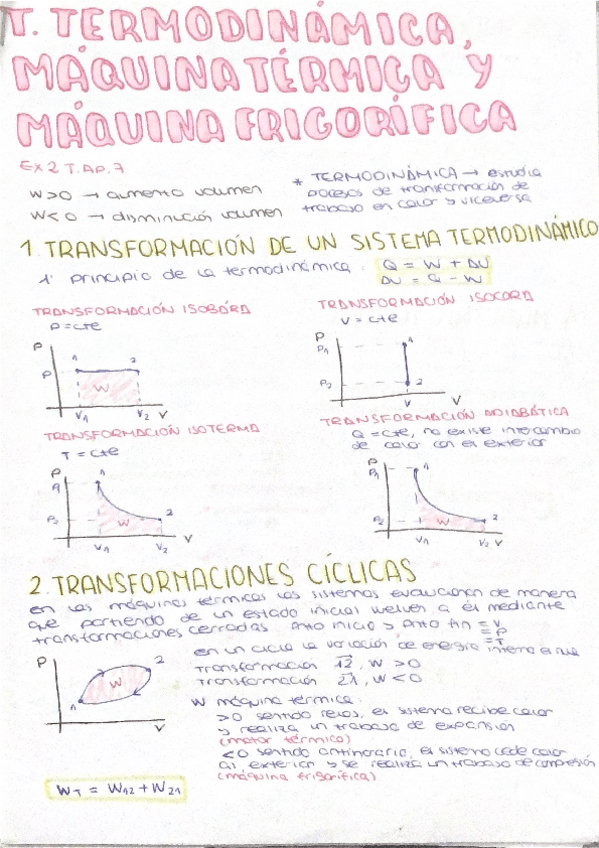 T. TERMODINÁMICA,
MÁQUINA TÉRMICA Y
MÁQUINA FRIGORÍFICA
EX 2 T. AP. 7
W>0 → aumento volumen
W<0 → disminución volumen
* TERMODINÁMICA → estudia
procesos de transformación de
trabajo en calor y viceversa
1. TRANSFORMACIÓN DE UN SISTEMA TERMODINÁMICO
1º principio de la termodinámica:
Q = W + ΔU
ΔU = Q - W
TRANSFORMACIÓN ISOBÁRA
P = cte
P
P
1
2
W
V1
V2
V
TRANSFORMACIÓN ISOCORA
V = cte
P
P1
P2
1
2
V
V
TRANSFORMACIÓN ISOTERMA
T = cte
P
P1
P2
1
2
W
V1
V2
V
TRANSFORMACIÓN ADIABÁTICA
Q = cte, no existe intercambio
de calor con el exterior
P
P1
P2
1
2
W
V1
V2
V
2. TRANSFORMACIONES CÍCLICAS
en las máquinas térmicas los sistemas evolucionan de manera
que partiendo de un estado inicial vuelven a él mediante
transformaciones cerradas. Pnto inicio y Pnto fin = V
= P
= T
en un ciclo la variación de energía interna es nula
Transformación 12, W > 0
Transformación 21, W < 0
P
1
2
W
V
W máquina térmica:
>0 sentido reloj, el sistema recibe calor
y realiza un trabajo de expansión
(motor térmico)
<0 sentido antihorario, el sistema cede calor
al exterior y se realiza un trabajo de compresión
(máquina frigorífica)
WT = W12 + W21